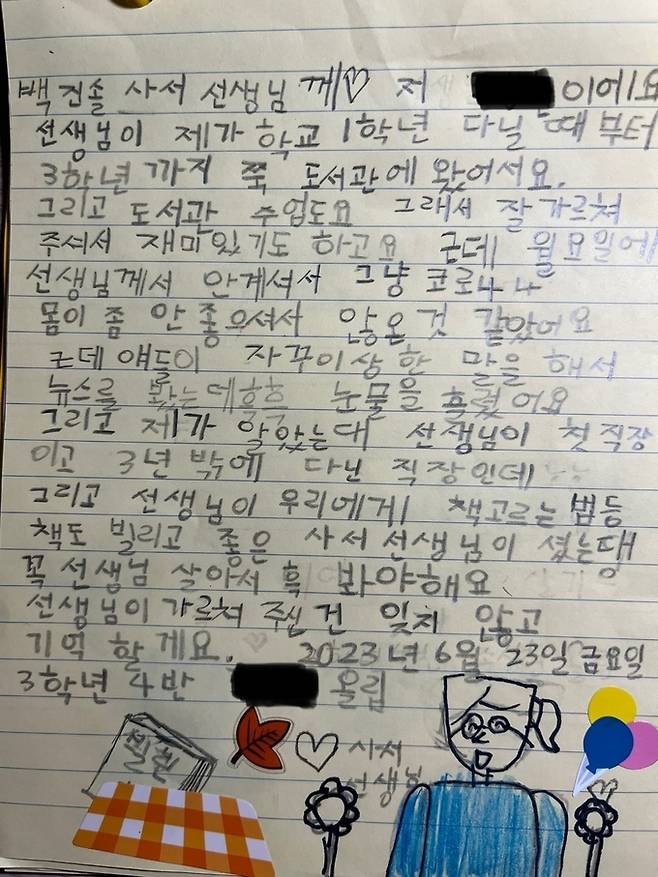 백진솔 사서 선생님 께♡ 저 이에요
선생님이 제가 학교 1학년 다닐 때 부터
3학년 까지 쭉 도서관에 왔어서요.
그리고 도서관 수업도요 그래서 잘가르쳐
주셔서 재미있기도 하고요 근데 월요일에
선생님께서 안계셔서 그냥 코로나 나
몸이 좀 안 좋으셔서 않온것 같았어요
근데 얘들이 자꾸이상한 말을 해서
뉴스를 봤는데흑흑 눈물을 흘렸어요
그리고 제가 알았는대 선생님이 첫직장
이고 3년 밖에 다닌 직장인데
그리고 선생님이 우리에게 책고르는 법등
책도 빌리고 좋은 사서선생님이 셨는댕
꼭 선생님 살아서 흑 봐야해요
선생님이 가르쳐 주신 건 잊치 않고
기억 할게요. 2023년 6월 23일 금요일
3학년 4반 올림
사서
선생님